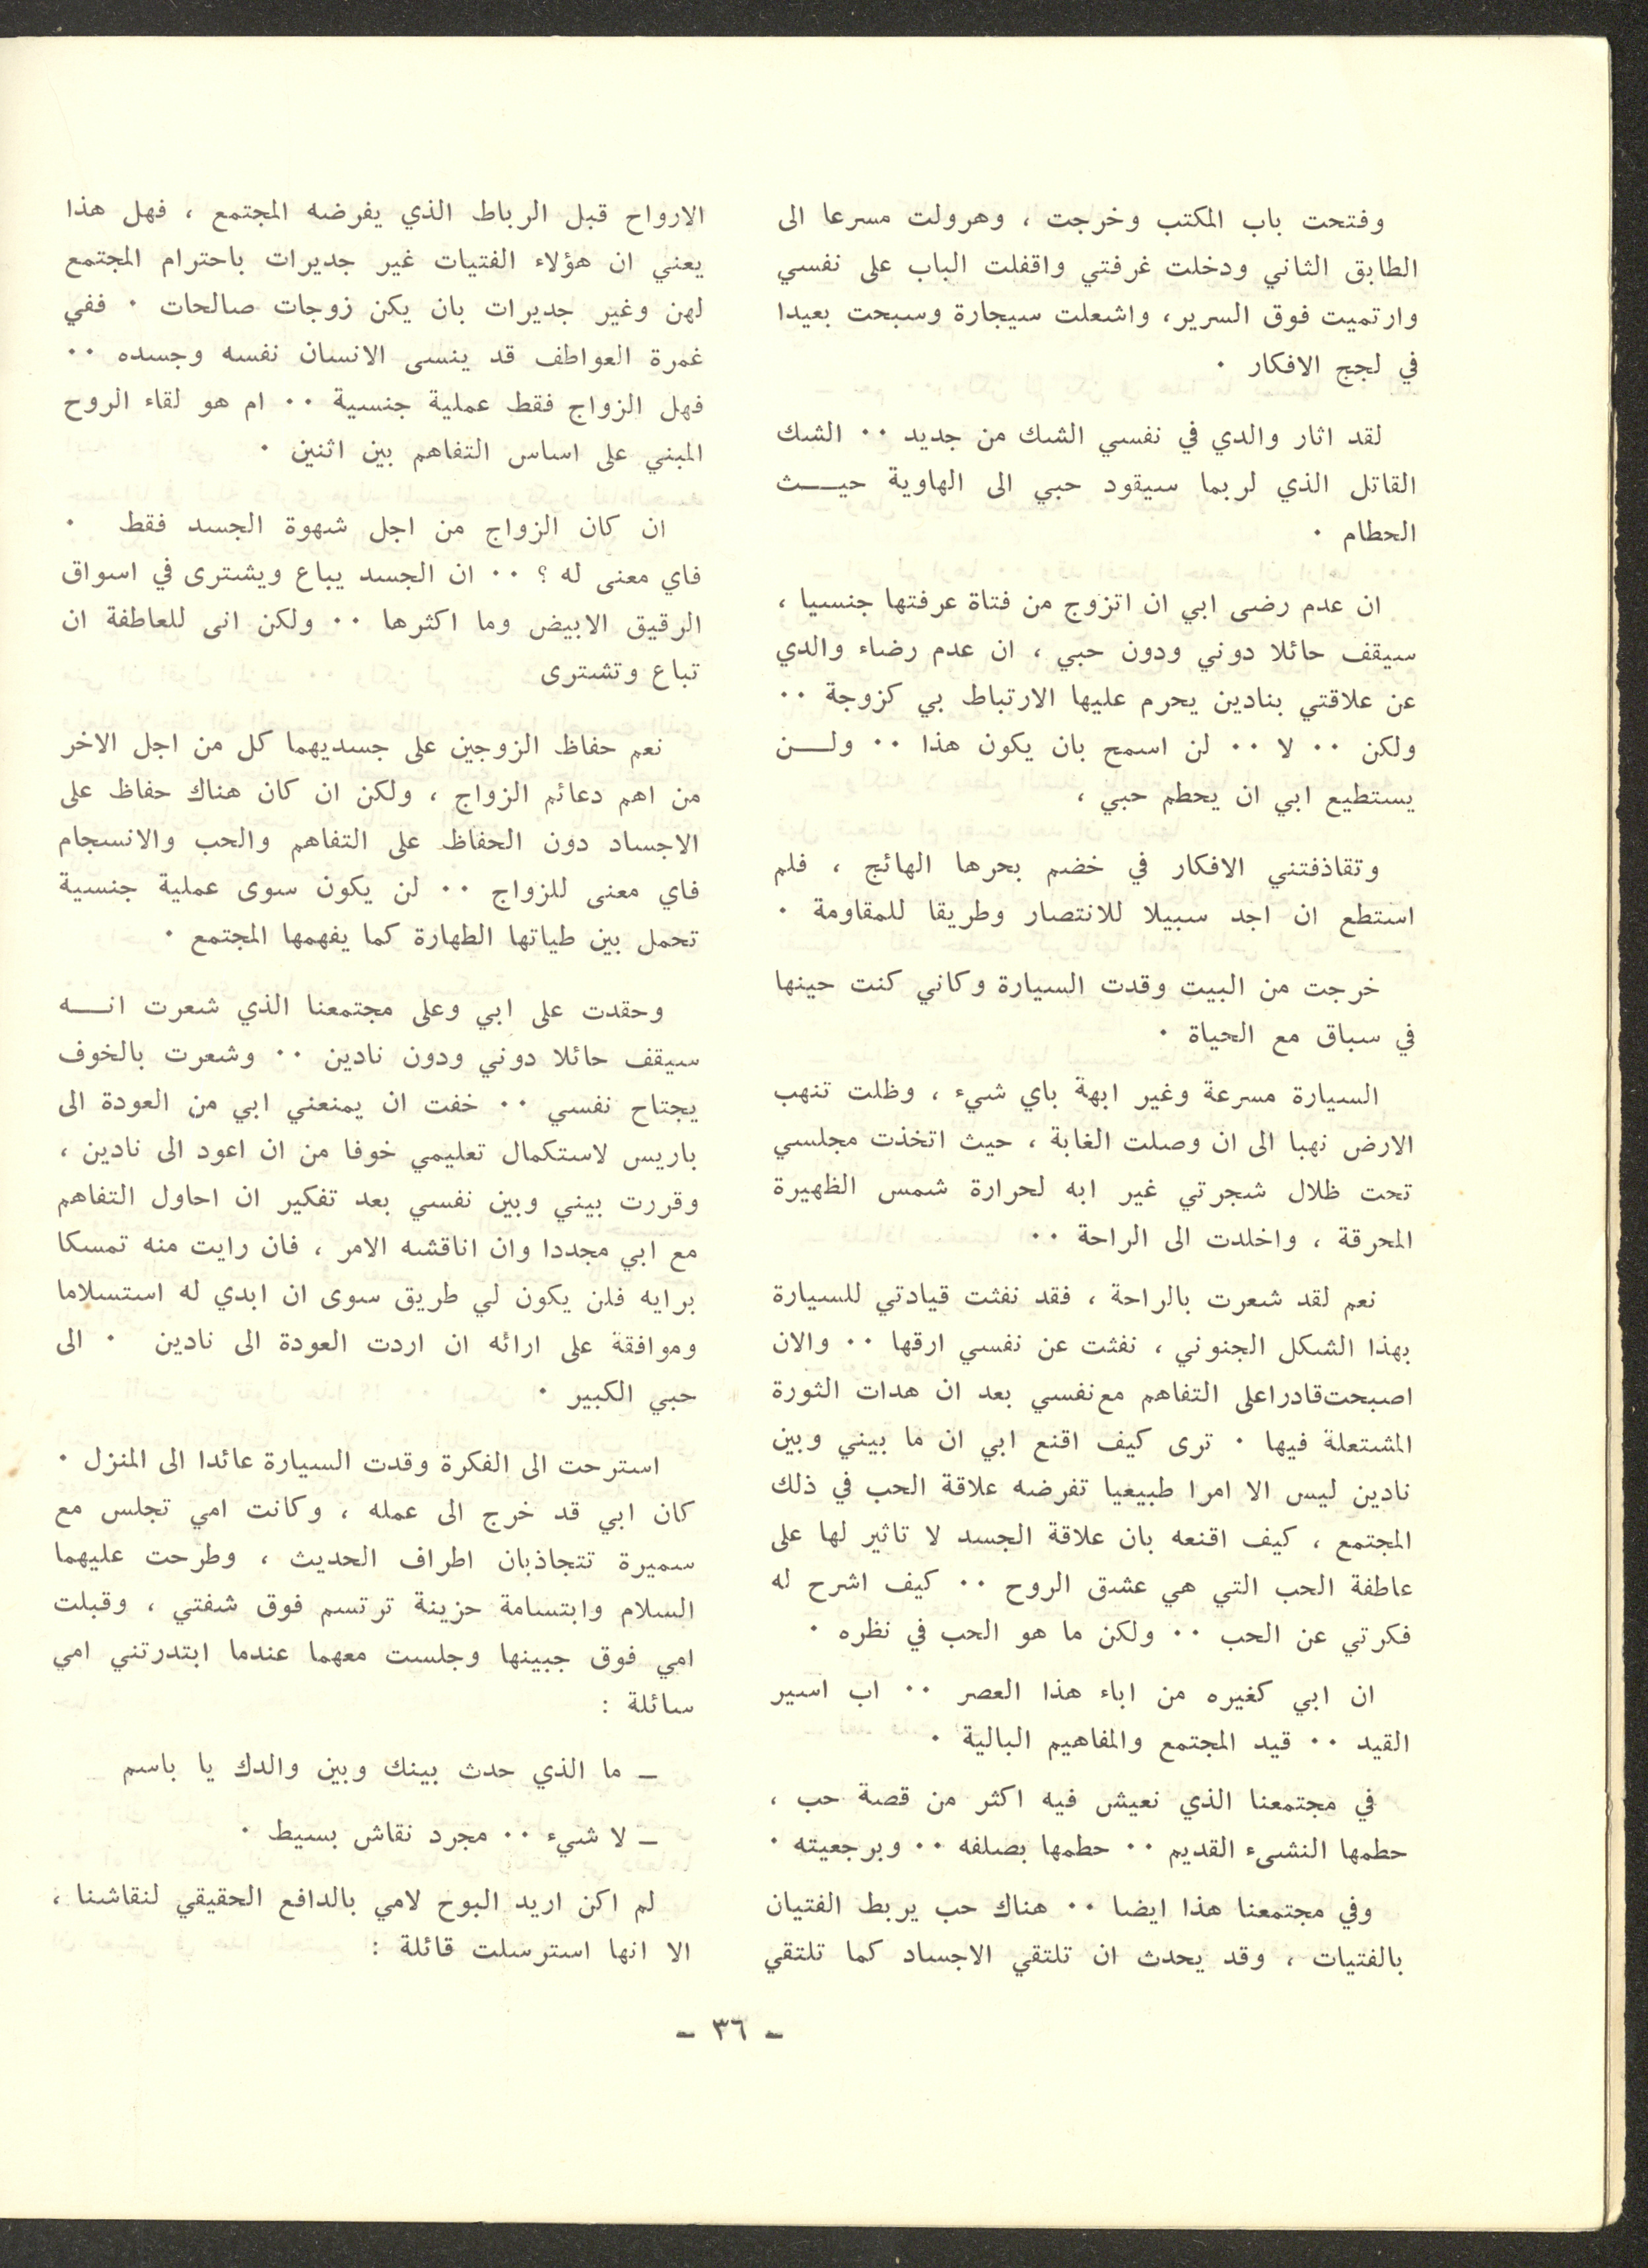 وفتحت باب المكتب وخرجت ، وهرولت مسرعا الى
الطابق الثاني ودخلت غرفتي واقفلت الباب على نفسي
وارتميت فوق السرير، واشعلت سيجارة وسبحت بعيدا
في لجج الافكار ٠
لقد اثار والدي في نفسي الشك من جديد ٠٠ الشك
القاتل الذي لربما سيقود حبي الى الهاوية حيــث
الحطام ٠
ان عدم رضى ابي ان اتزوج من فتاة عرفتها جنسيا ،
سيقف حائلا دوني ودون حبي ، ان عدم رضاء والدي
عن علاقتي بنادين يحرم عليها الارتباط بي كزوجة ٠٠
ولكن ٠٠ لا ٠٠ لن اسمح بان يكون هذا ٠٠ ولــن
يستطيع ابي ان يحطم حبي ،
وتقاذفتني الافكار في خضم بحرها الهائج ، فلم
استطع ان اجد سبيلا للانتصار وطريقا للمقاومة ٠
خرجت من البيت وقدت السيارة وكاني كنت حينها
في سباق مع الحياة ٠
السيارة مسرعة وغير ابهة باي شيء ، وظلت تنهب
الارض نهبا الى ان وصلت الغابة ، حيث اتخذت مجلسي
تحت ظلال شجرتي غير ابه لحرارة شمس الظهيرة
المحرقة ، واخلدت الى الراحة ٠٠
نعم لقد شعرت بالراحة ، فقد نفثت قيادتي للسيارة
بهذا الشكل الجنوني ، نفثت عن نفسي ارقها ٠٠ والان
اصبحت قادرا على التفاهم مع نفسي بعد ان هدات الثورة
المشتعلة فيها ٠ ترى كيف اقنع ابي ان ما بيني وبين
نادين ليس الا امرا طبيعيا تفرضه علاقة الحب في ذلك
المجتمع ، كيف اقنعه بان علاقة الجسد لا تاثير لها على
عاطفة الحب التي هي عشق الروح ٠٠ كيف اشرح له
فكرتي عن الحب ٠٠ ولكن ما هو الحب في نظره ٠
ان ابي كغيره من اباء هذا العصر ٠٠ اب اسير
القيد ٠٠ قيد المجتمع والمفاهيم البالية ٠
في مجتمعنا الذي نعيش فيه اكثر من قصة حب ،
حطمها النشىء القديم ٠٠ حطمها بصلفه ٠٠ وبرجعيته ٠
وفي مجتمعنا هذا ايضا ٠٠ هناك حب يربط الفتيان
بالفتيات ، وقد يحدث ان تلتقي الاجساد كما تلتقي
الارواح قبل الرباط الذي يفرضه المجتمع ، فهل هذا
يعني ان هؤلاء الفتيات غير جديرات باحترام المجتمع
لهن وغير جديرات بان يكن زوجات صالحات ٠ ففي
غمرة العواطف قد ينسى الانسان نفسه وجسده ٠٠
فهل الزواج فقط عملية جنسية ٠٠ ام هو لقاء الروح
المبني على اساس التفاهم بين اثنين ٠
ان كان الزواج من اجل شهوة الجسد فقط ٠
فاي معنى له ؟ ٠٠ ان الجسد يباع ويشترى في اسواق
الرقيق الابيض وما اكثرها ٠٠ ولكن انى للعاطفة ان
تباع وتشترى
نعم حفاظ الزوجين على جسديهما كل من اجل الاخر
من اهم دعائم الزواج ، ولكن ان كان هناك حفاظ على
الاجساد دون الحفاظ على التفاهم والحب والانسجام
فاي معنى للزواج ٠٠ لن يكون سوى عملية جنسية
تحمل بين طياتها الطهارة كما يفهمها المجتمع ٠
وحقدت على ابي وعلى مجتمعنا الذي شعرت انــه
سيقف حائلا دوني ودون نادين ٠٠ وشعرت بالخوف
يجتاح نفسي ٠٠ خفت ان يمنعني ابي من العودة الى
باريس لاستكمال تعليمي خوفا من ان اعود الى نادين ،
وقررت بيني وبين نفسي بعد تفكير ان احاول التفاهم
مع ابي مجددا وان اناقشه الامر ، فان رايت منه تمسكا
برايه فلن يكون لي طريق سوى ان ابدي له استسلاما
وموافقة على ارائه ان اردت العودة الى نادين ٠ الى
حبي الكبير ٠
استرحت الى الفكرة وقدت السيارة عائدا الى المنزل ٠
كان ابي قد خرج الى عمله ، وكانت امي تجلس مع
سميرة تتجاذبان اطراف الحديث ، وطرحت عليهما
السلام وابتسامة حزينة ترتسم فوق شفتي ، وقبلت
امي فوق جبينها وجلست معهما عندما ابتدرتني امي
سائلة :
ـ ما الذي حدث بينك وبين والدك يا باسم
ـ لا شيء ٠٠ مجرد نقاش بسيط ٠
لم اكن اريد البوح لامي بالدافع الحقيقي لنقاشنا ،
الا انها استرسلت قائلة :
ـ ٣٦ ـ